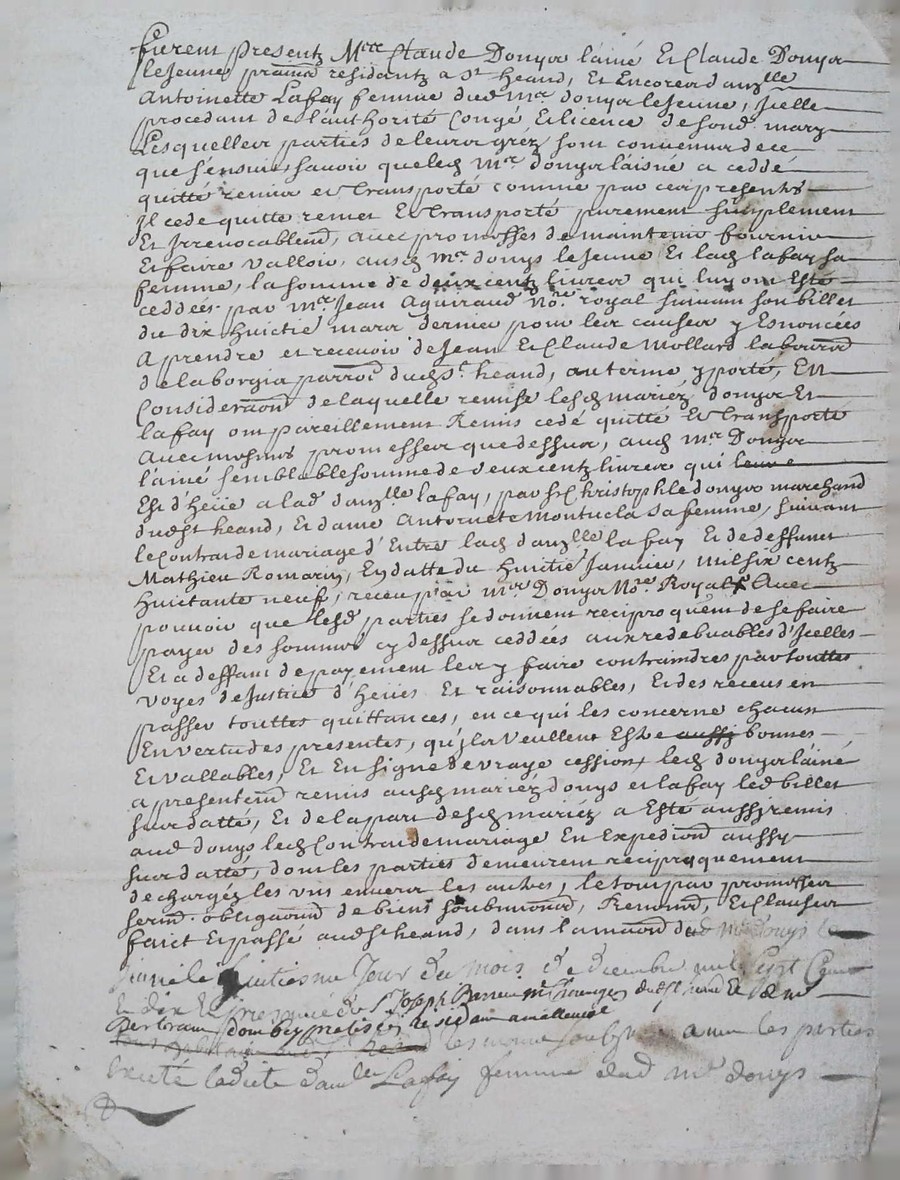 furent presentz Mre Claude Donyor lainé Et Claude Donyor
le Jeune praticien residantz a St heand, Et Encores danzlle
Antoinette Lafay femme dud mre donyor le Jeune, Icelle
procedant de l'authorité Congé Et licence de sond mary
Lesquelles parties de leurs gréz sont convenues de ce
que s'ensuit, savoir que led mre donyor laisné a ceddé
quitté remis et transporté comme par ces presentes
Il cede quitte remet Et transporte purement simplement
Et Irrevocablemt, avec promesses de maintenir fournir
Et faire valloir, aud mre donys le Jeune Et lad lafay sa
femme, la somme de deux centz livres qui luy ont Esté
ceddées par mre Jean Aguiraud Nore royal suivant son billet
du dix huictie mars dernier pour les causes y Esnoncées
A prendre et recevoir de Jean Et Claude Mollard laboureurs
de la borgia parroisse dud St heand, au terme y porté, En
Consideraon de laquelle remise lesd mariéz donyor Et
lafay ont pareillement Remis cedé quitté Et transporté
Avec mesmes promesses que dessus, aud mre Donyor
l'ainé semblable somme de deux centz livres qui
Est d'heüe a lad danzlle lafay, par sr Christophle donyor marchand
dud St heand, Et dame Antoinete Montucla sa femme, suivant
le Contrat de mariage d'Entre lad danzlle lafay Et de deffunct
Mathieu Romariy, En datte du huictie Janvier, mil six centz
huictante neuf, receu par mre Donyor Nore Royal x Avec
pouvoir que lesd parties se donnent reciproquemt de se faire
payer des sommes cy dessus ceddées aux redebuables d'Icelles
Et a deffaut de payement les y faire contraindres par touttes
voyes de Justice d'heües Et raisonnables, Et des receus en
passer touttes quittances, en ce qui les concerne chacun
En vertu des presentes, qu'ils veullent Estre aussy bonnes
Et vallables, Et En signe de vraye cession, led donyor lainé
a presentemt remis ausd mariéz donys et lafay led billet
sus datté, Et de la part desd mariéz a Esté aussy remis
aud donys led Contrat de mariage En Expedition aussy
sus datté, dont les parties demeurent reciproquement
dechargéz les uns envers les autres, le tout par promesses
sermt obligaons de biens soubmons, Renons, Et clauses
faict Et passé aud St heand, dans la maison dud mre donys le
Jeune le huictiesme Jour du mois de decembre mil sept Cent
Et dix En presence de Sr Joseph mre dud St heand Et de mre
Bertrand praticien residant
les parties
Excepté ladite danlle Lafay femme dud mre donys